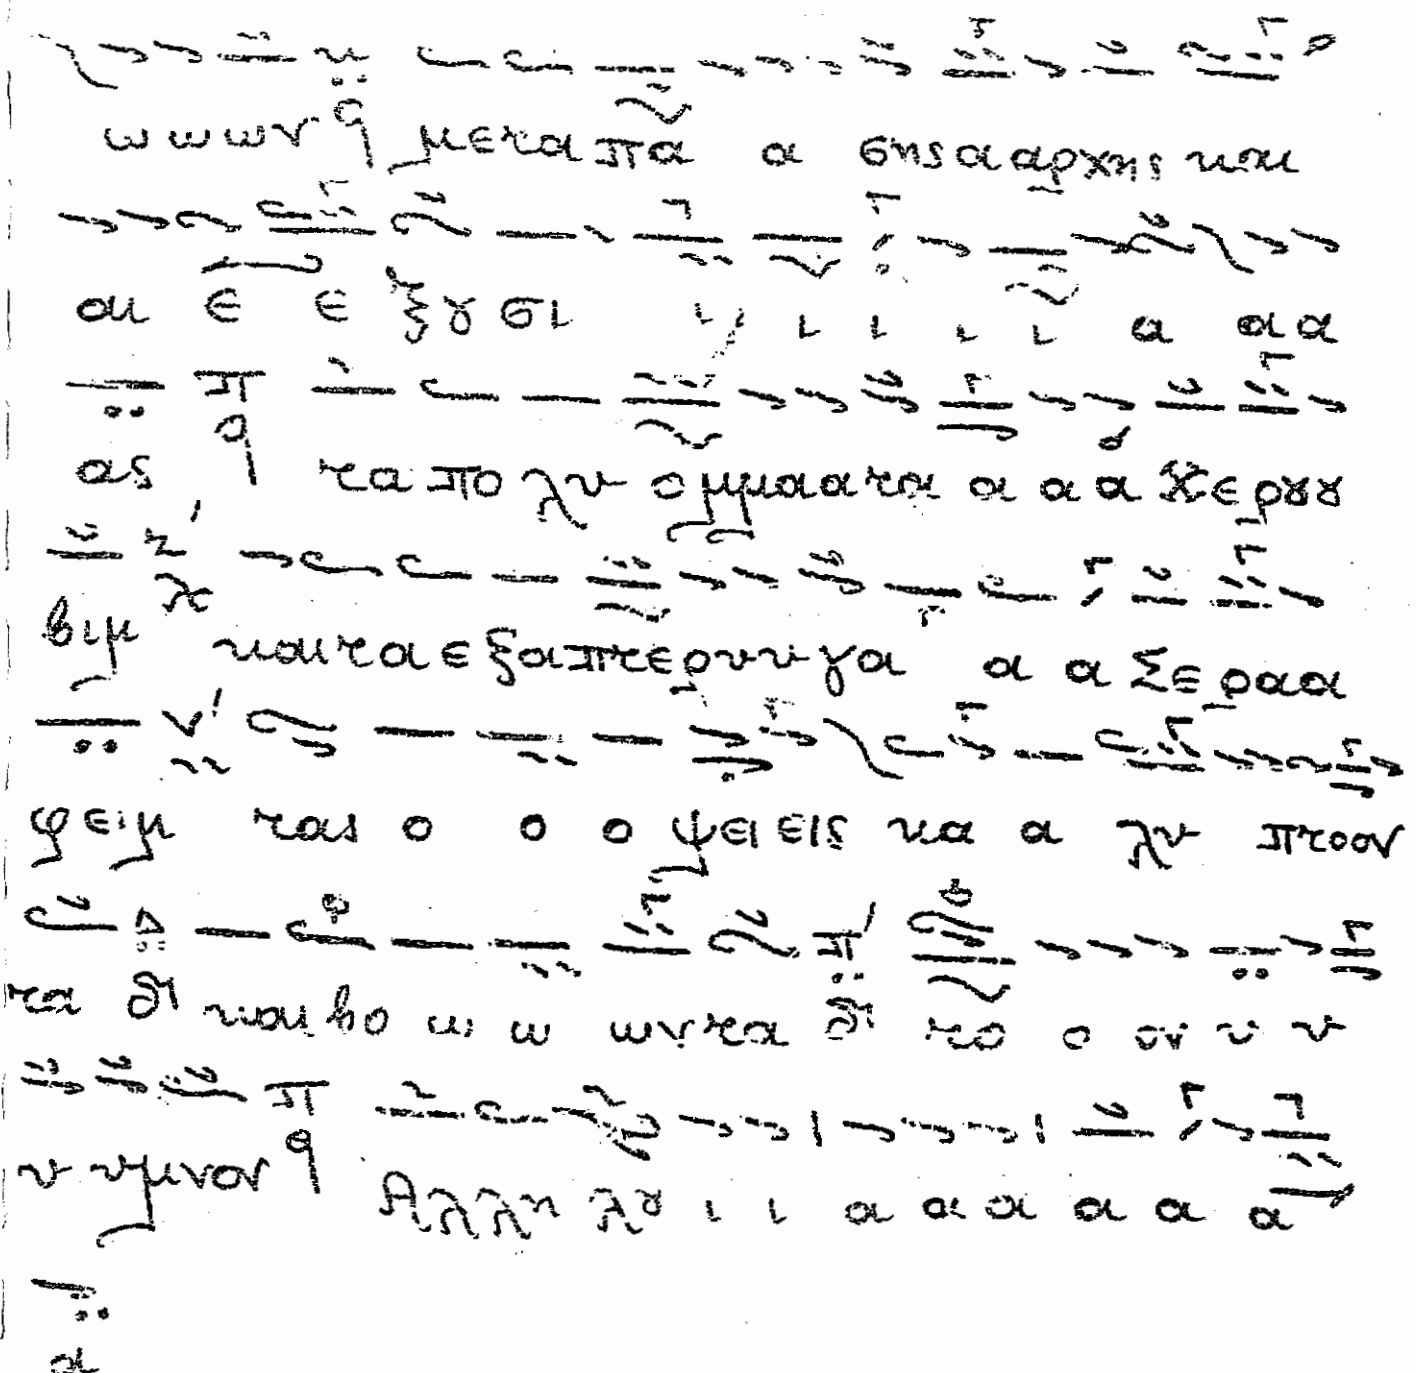 ω ω ων μεταπα α σης α αρχης και
αι ε ε ξȣσι ι ι ι ι ι α α α
ας τα πο λυ ομμαατα α α α Χερȣȣ
βιμ και τα εξαπτερυυγα α α Σεραα
φειμ τας ο ο ο ψειεις κα α λυ πτοον
τα δι και βο ω ω ωντα δι το ο ον υ υ
υ υμνον Αλληλȣ ι ι α α α α α α
α